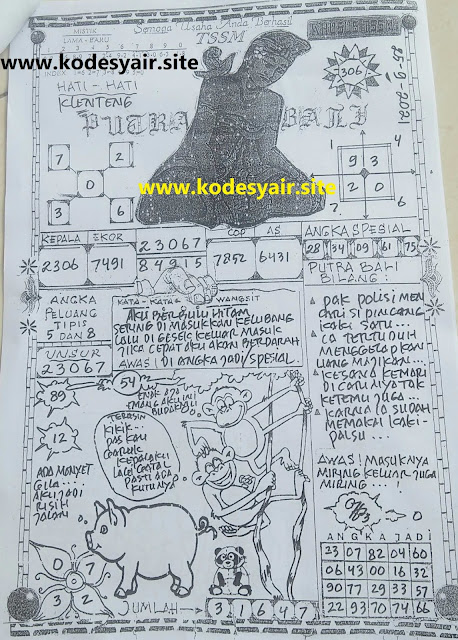 Semoga Usaha Anda Berhasil
TSSM
MISTIK
LAMA - BARU
1 2 3 4 5 6 7 8 9 0
INDEX
www.kodesyair.site
306
25-9-2021
HATI - HATI
KLENTENG
PUTRA BALI
www.kodesyair.site
7 2
0
3 6
1 4
9 3
2 0
7 6
KEPALA EKOR
2306 7491
23067
84915
COP AS
7852 6431
ANGKA SPESIAL
28 34 09 61 75
ANGKA
PELUANG
TIPIS
5 DAN 8
UNSUR
23067
KATA - KATA WANGSIT
AKU BERBULU HITAM
SERING DI MASUKKAN KELUBANG
LALU DI GESEK KELUAR MASUK
JIKA CEPAT AKU AKAN BERDARAH
AWAS! DI ANGKA JADI/SPESIAL.
PUTRA BALI
BILANG:
PAK POLISI MEN
CARI SI PINCANG
KAKI SATU...
IA TERTUDUH
MENGGELAPKAN
UANG MAJIKAN...
KESANA KEMARI
DI CARI NYA TAK
KETEMU JUGA...
KARNA IA SUDAH
MEMAKAI KAKI
PALSU...
AWAS! MASUKNYA
MIRING KELUAR JUGA
MIRING...!
89
54
12
ADA MONYET
GILA....
AKU JADI
RISIH
KIKIK..
PAS KAU
GARUK
KEPALAKU
LAGI GATAL
PASTI ADA
KUTUNYA
0 7
3 2
JUMLAH → 3 1 6 4 7
0
ANGKA JADI
23 07 82 04 60
06 43 00 16 32
90 77 29 33 57
22 93 70 74 66